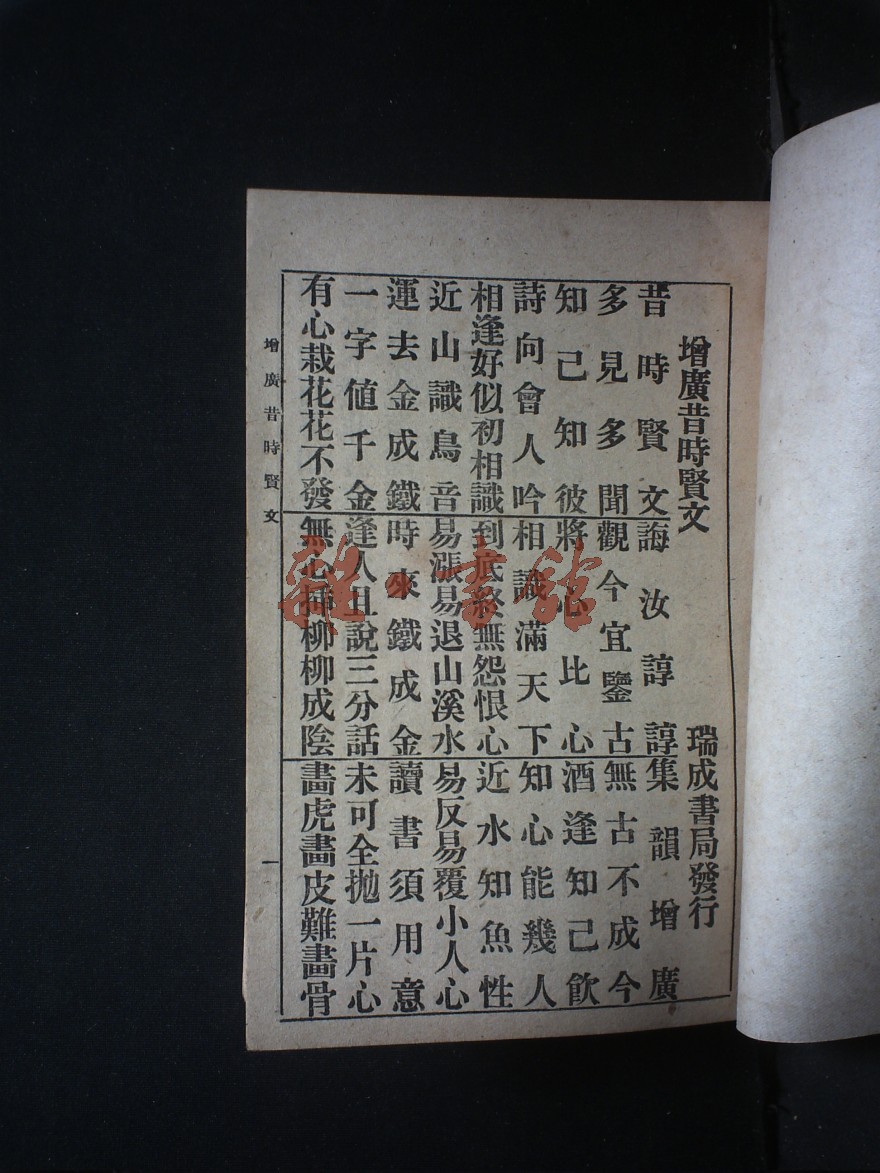 增廣昔時賢文 瑞成書局發行
昔時賢文 誨汝諄諄 集韻增廣
多見多聞 觀今宜鑒古 無古不成今
知己知彼 將心比心 酒逢知己飲
詩向會人吟 相識滿天下 知心能幾人
相逢好似初相識 到底終無怨恨心 近水知魚性
近山識鳥音 易漲易退山溪水 易反易覆小人心
運去金成鐵 時來鐵成金 讀書須用意
一字値千金 逢人且說三分話 未可全拋一片心
有心栽花花不發 無心挿柳柳成陰 畫虎畫皮難畫骨
增廣昔時賢文 一
雜·書館